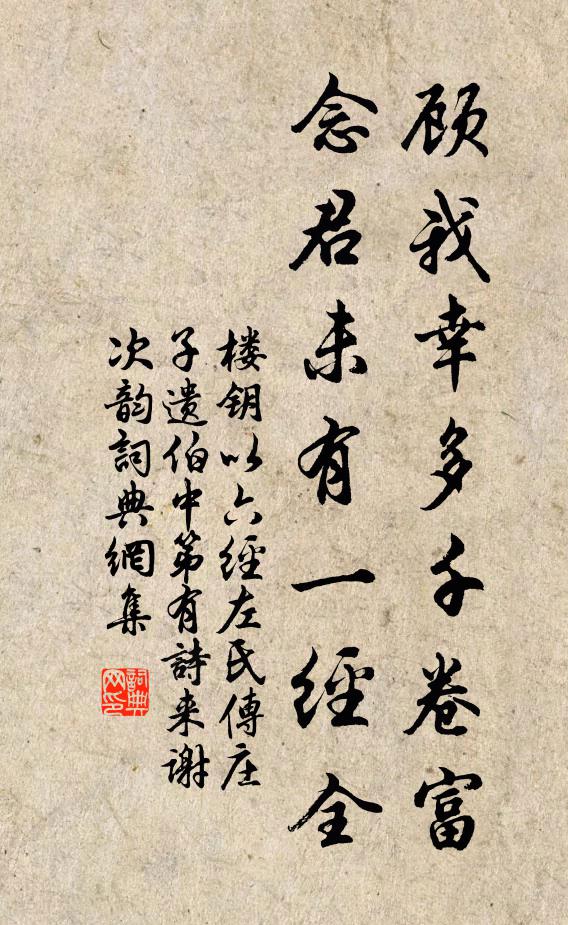 顾我幸多千卷富
念君未有一經全
楼钥以六經左氏傳庄
子遗伯中第有詩来謝
次韵詞典網集
詞典網印